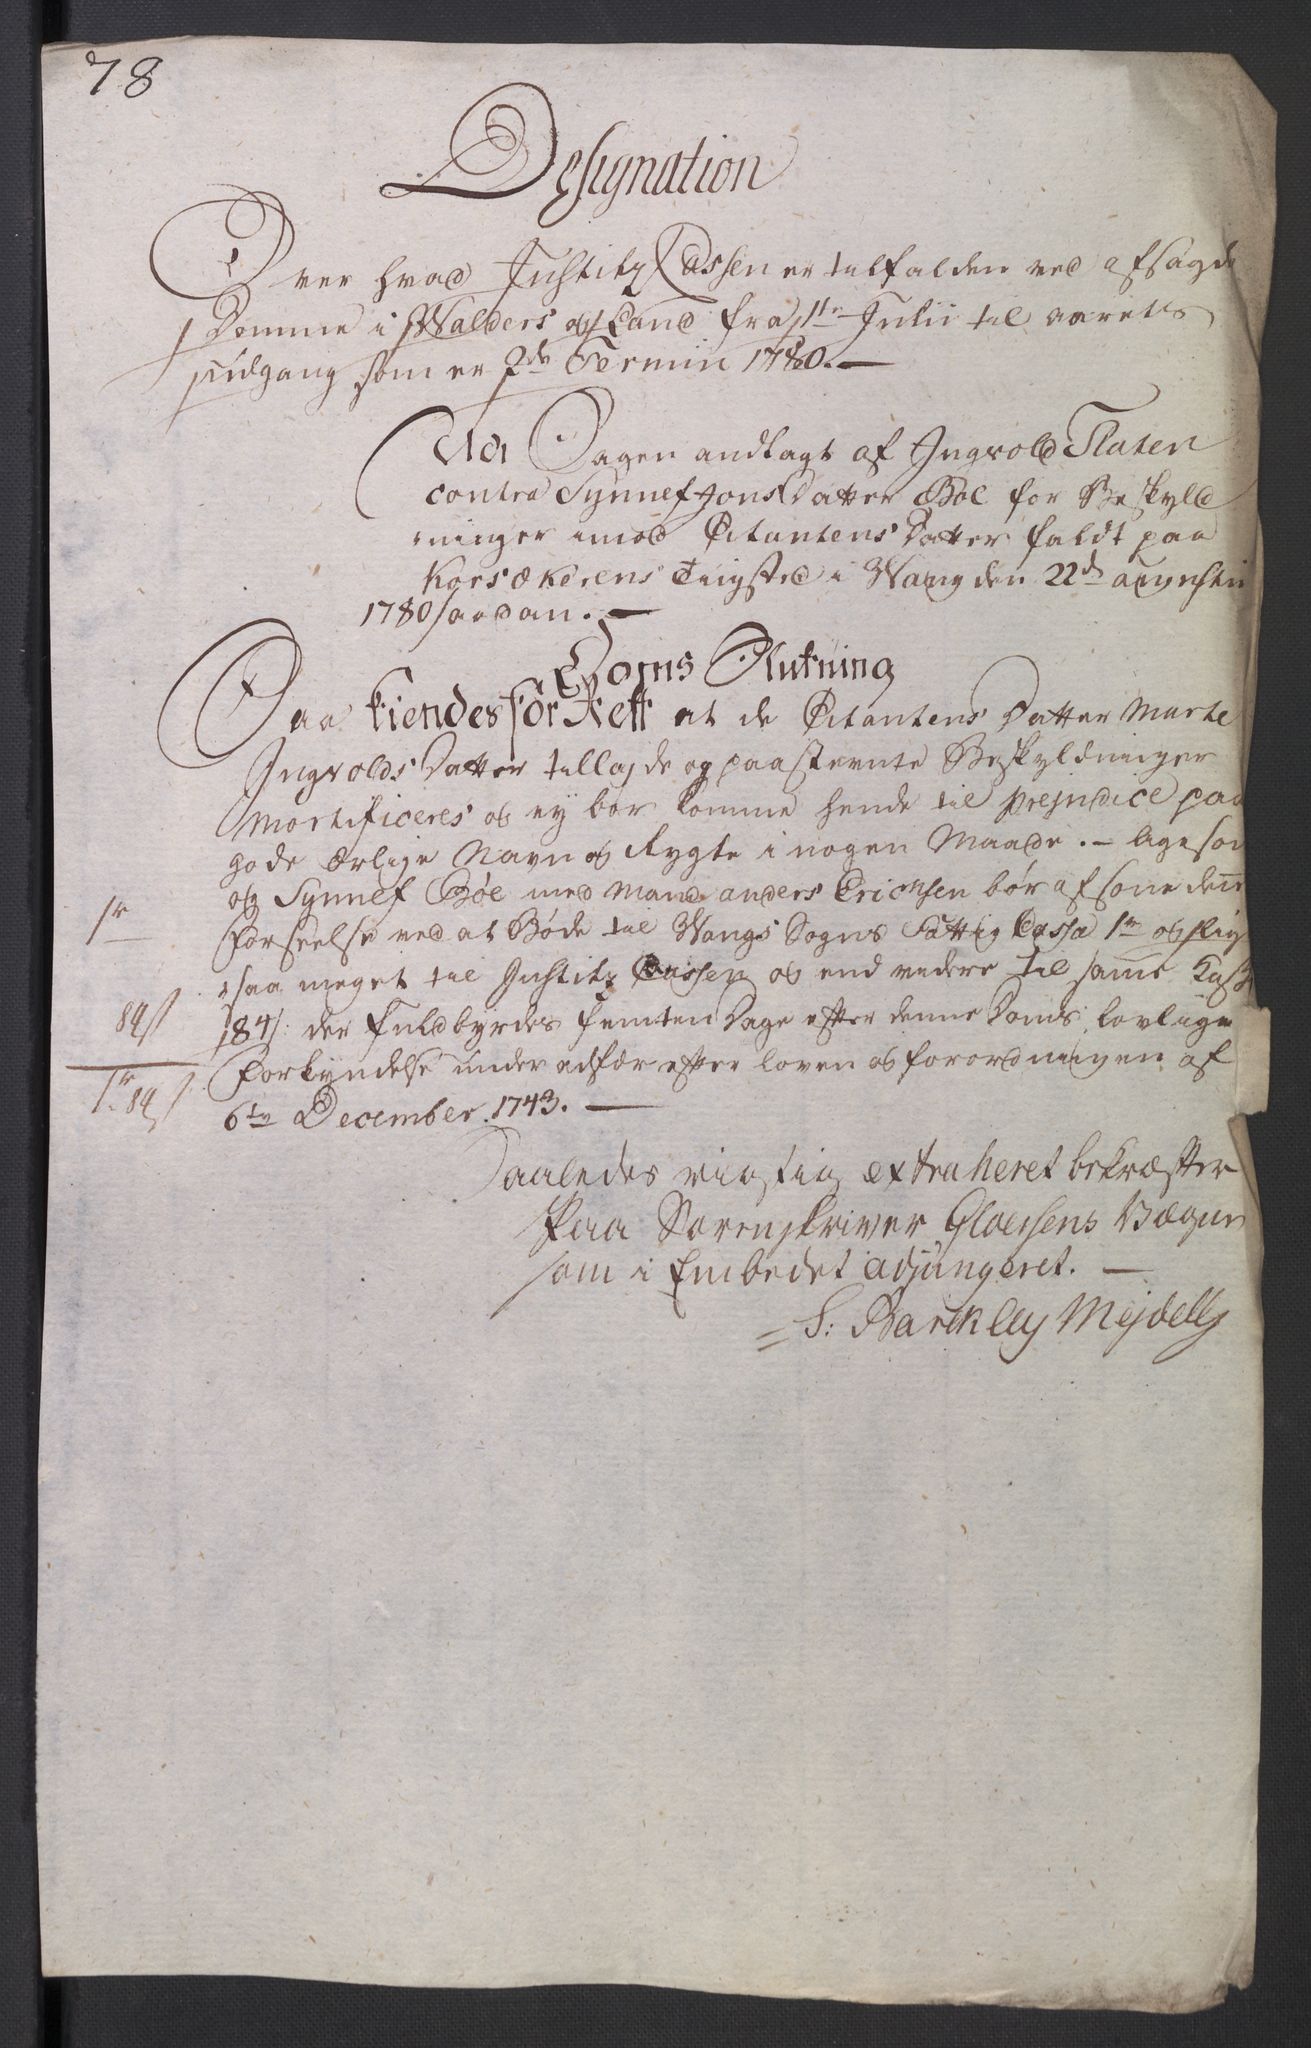 78
Designation
Over hvad Justitz Cassen er tilfalden ved afsagde
Domme i Walders og Land fra 1te Julii til aarets
udgang som er 2de Termin 1780. —
Udi Sagen andlagt af Ingvold Flaten
contra Synnef Jons Datter Bøe for Beskyld
ninger imod Citantens Datter faldt paa
Korsøkerens Tingsted i Wang den 22de Augusti
1780 saadan. —
Doms Slutning
Saa kiendes for Rett at de Citantens Datter Marte
Ingvolds Datter tillagde og paastevnte Beskyldninger
Mortificeres og ey bør komme hende til prejudice paa
gode Ærlige Navn og Rygte i nogen Maade. – ligesom
og Synnef Bøe med Mand anders Erichsen bør afsone denne
1r
Forseelse ved at Bøde til Wangs Sogns Fattig Cassa 1r og lige
saa meget til Justitz Cassen og end videre til samme Cassa
84 s
84 s: der fuldbyrdes femten Dage efter denne Doms lovlige
Forkyndelse under adfær efter loven og forordningen af
1r 84 s
6te December 1743. —
Saaledes rigtig extraheret bekræfter
Paa Sorenskriver Gloersens Vægne
som i Embedet adjungeret. —
S: Barckley Mejdell